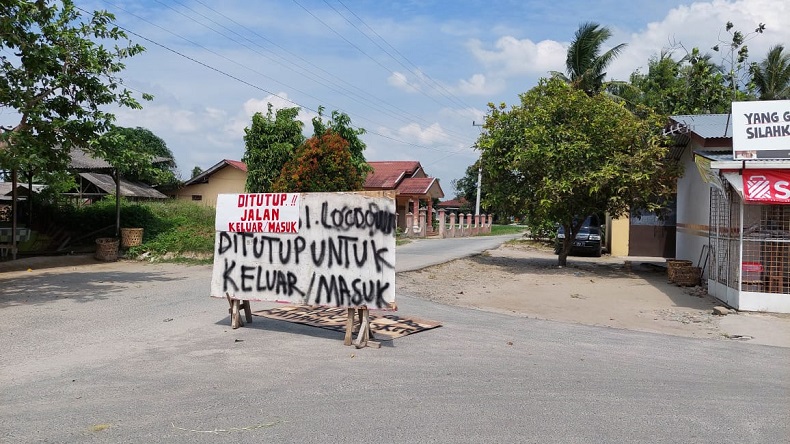 DITUTUP !!
JALAN
KELUAR/MASUK
1. LOCDOWN
DITUTUP UNTUK
KELUAR/MASUK
YANG G
SILAHK
S